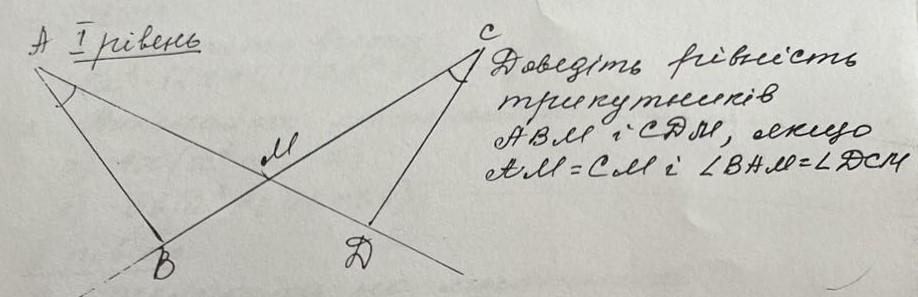 A I рівень
C
Доведіть рівність
трикутників
ABM і CDM, якщо
AM = CM і ∠BAM = ∠DCM
M
B
D